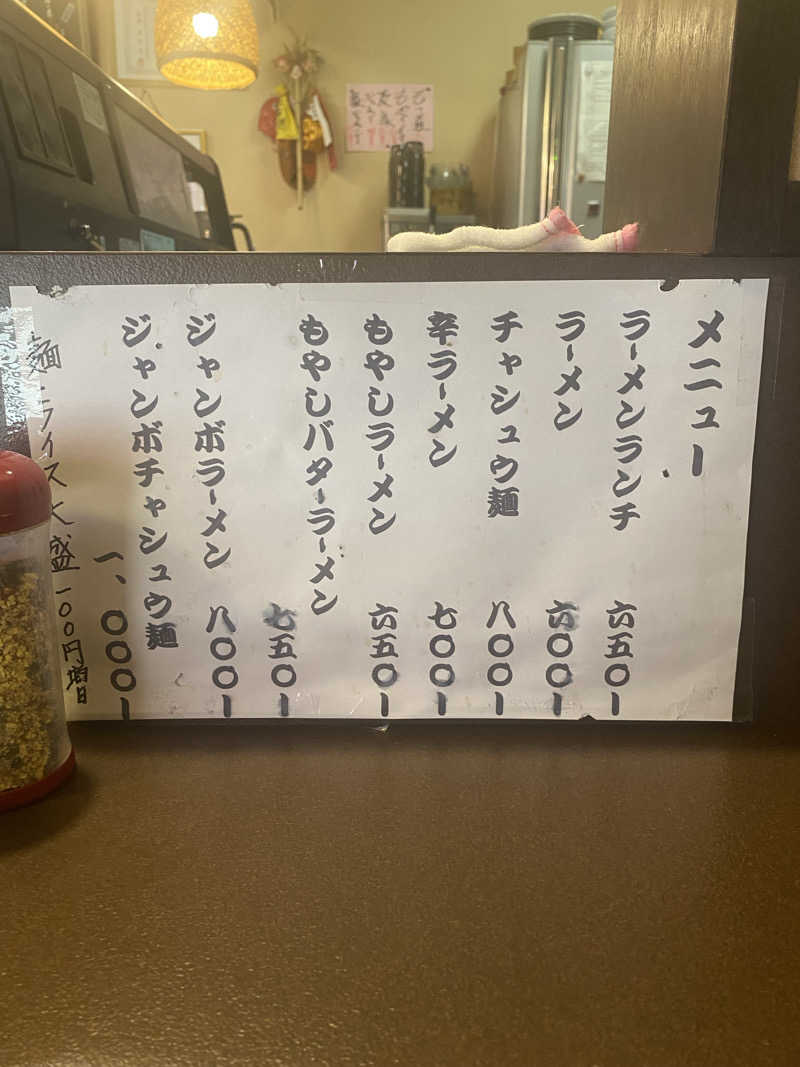 メニュー
ラーメンランチ 六五〇ー
ラーメン 六〇〇ー
チャシュウ麺 八〇〇ー
辛ラーメン 七〇〇ー
もやしラーメン 六五〇ー
もやしバターラーメン 七五〇ー
ジャンボラーメン 八〇〇ー
ジャンボチャシュウ麺 一、〇〇〇ー
麺・ライス大盛一〇〇円増